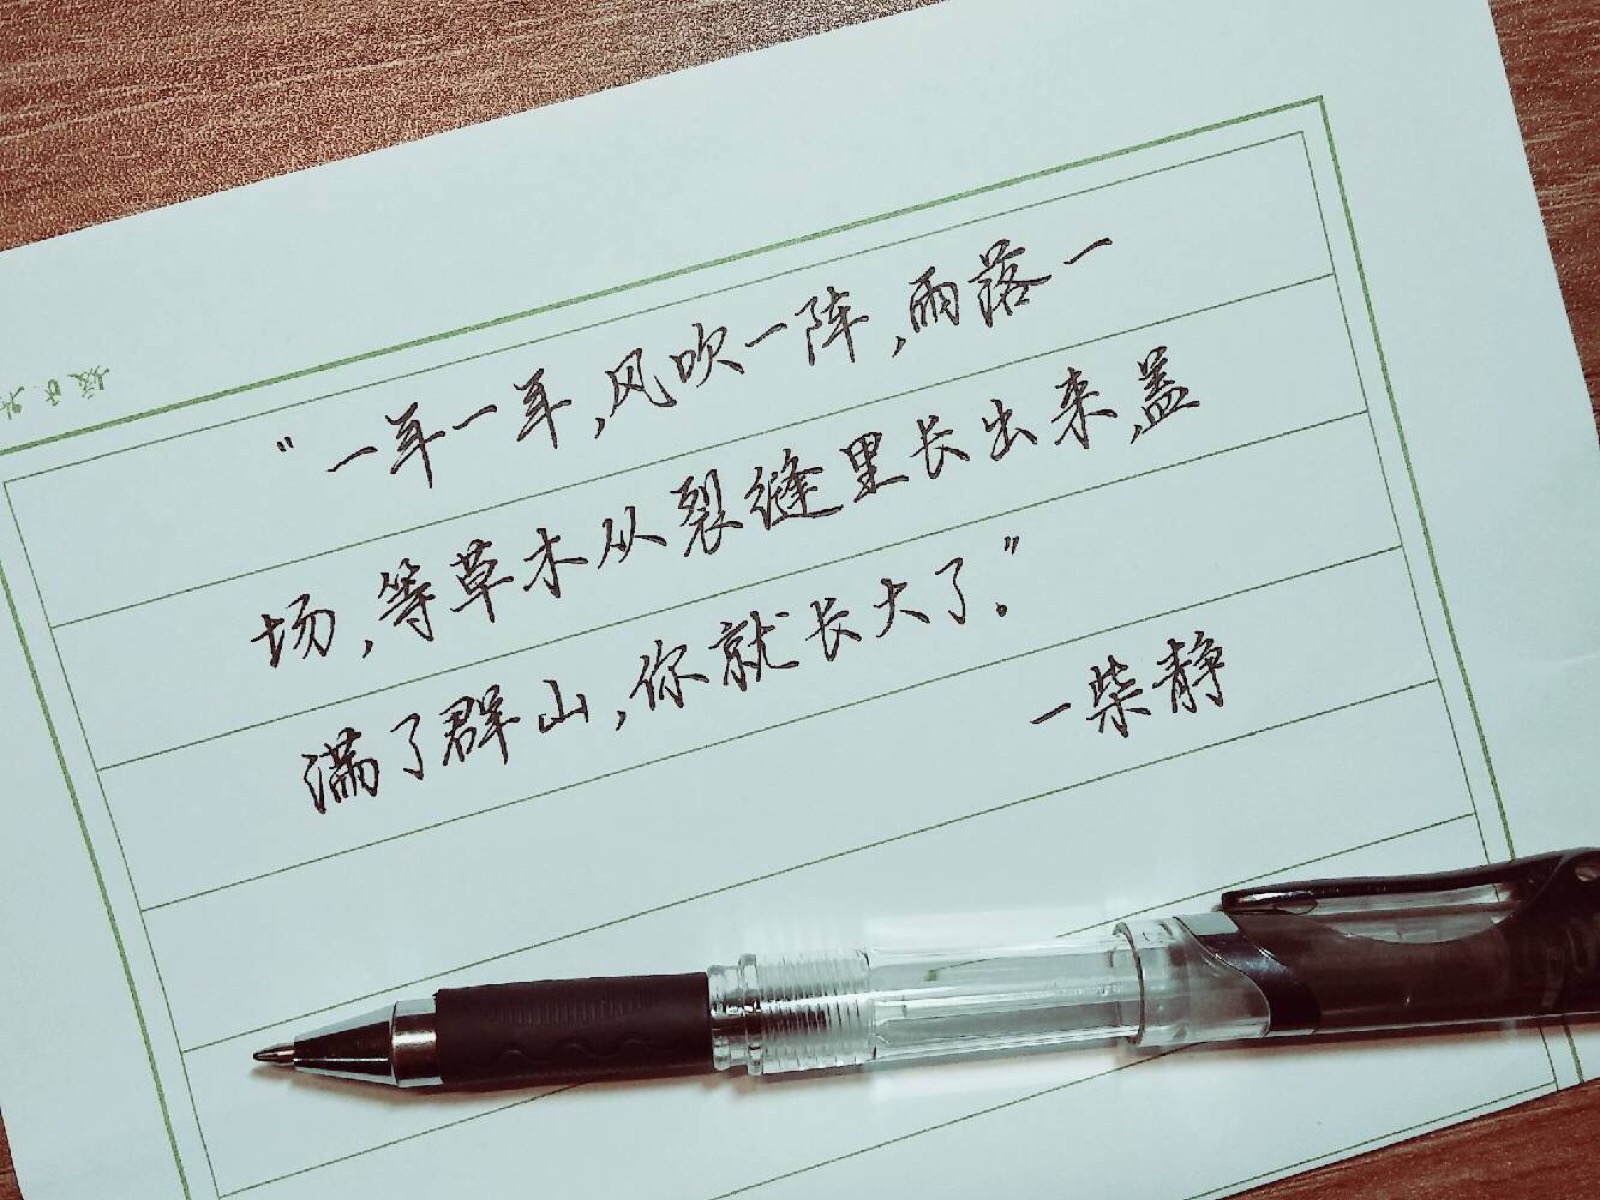 “一年一年,风吹一阵,雨落一
场,等草木从裂缝里长出来,盖
满了群山,你就长大了。”
一柴静